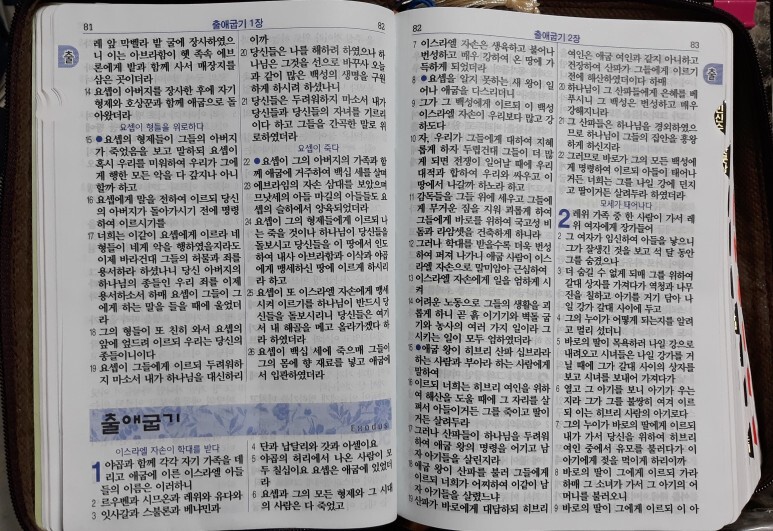 81
출애굽기 1장
82
레 앞 막벨라 밭 굴에 장사하였으
니 이는 아브라함이 헷 족속 에브
론에게 밭과 함께 사서 매장지를
삼은 곳이더라
14 요셉이 아버지를 장사한 후에 자기
형제와 호상꾼과 함께 애굽으로 돌
아왔더라
요셉이 형들을 위로하다
15 ●요셉의 형제들이 그들의 아버지
가 죽었음을 보고 말하되 요셉이
혹시 우리를 미워하여 우리가 그에
게 행한 모든 악을 다 갚지나 아니
할까 하고
16 요셉에게 말을 전하여 이르되 당신
의 아버지가 돌아가시기 전에 명령
하여 이르시기를
17 너희는 이같이 요셉에게 이르라 네
형들이 네게 악을 행하였을지라도
이제 바라건대 그들의 허물과 죄를
용서하라 하셨나니 당신 아버지의
하나님의 종들인 우리 죄를 이제
용서하소서 하매 요셉이 그들이 그
에게 하는 말을 들을 때에 울었더
라
18 그의 형들이 또 친히 와서 요셉의
앞에 엎드려 이르되 우리는 당신의
종들이니이다
19 요셉이 그들에게 이르되 두려워하
지 마소서 내가 하나님을 대신하리
이까
20 당신들은 나를 해하려 하였으나 하
나님은 그것을 선으로 바꾸사 오늘
과 같이 많은 백성의 생명을 구원
하게 하시려 하셨나니
21 당신들은 두려워하지 마소서 내가
당신들과 당신들의 자녀를 기르리
이다 하고 그들을 간곡한 말로 위
로하였더라
요셉이 죽다
22 ●요셉이 그의 아버지의 가족과 함
께 애굽에 거주하여 백십 세를 살며
23 에브라임의 자손 삼대를 보았으며
므낫세의 아들 마길의 아들들도 요
셉의 슬하에서 양육되었더라
24 요셉이 그의 형제들에게 이르되 나
는 죽을 것이나 하나님이 당신들을
돌보시고 당신들을 이 땅에서 인도
하여 내사 아브라함과 이삭과 야곱
에게 맹세하신 땅에 이르게 하시리
라 하고
25 요셉이 또 이스라엘 자손에게 맹세
시켜 이르기를 하나님이 반드시 당
신들을 돌보시리니 당신들은 여기
서 내 해골을 메고 올라가겠다 하
라 하였더라
26 요셉이 백십 세에 죽으매 그들이
그의 몸에 향 재료를 넣고 애굽에
서 입관하였더라
출애굽기
Exodus
이스라엘 자손이 학대를 받다
1 야곱과 함께 각각 자기 가족을 데
리고 애굽에 이른 이스라엘 아들
들의 이름은 이러하니
2 르우벤과 시므온과 레위와 유다와
3 잇사갈과 스불론과 베냐민과
4 단과 납달리와 갓과 아셀이요
5 야곱의 허리에서 나온 사람이 모
두 칠십이요 요셉은 애굽에 있었더
라
6 요셉과 그의 모든 형제와 그 시대
의 사람은 다 죽었고
82
출애굽기 2장
83
7 이스라엘 자손은 생육하고 불어나
번성하고 매우 강하여 온 땅에 가
득하게 되었더라
8 ●요셉을 알지 못하는 새 왕이 일
어나 애굽을 다스리더니
9 그가 그 백성에게 이르되 이 백성
이스라엘 자손이 우리보다 많고 강
하도다
10 자, 우리가 그들에게 대하여 지혜
롭게 하자 두렵건대 그들이 더 많
게 되면 전쟁이 일어날 때에 우리
대적과 합하여 우리와 싸우고 이
땅에서 나갈까 하노라 하고
11 감독들을 그들 위에 세우고 그들에
게 무거운 짐을 지워 괴롭게 하여
그들에게 바로를 위하여 국고성 비
돔과 라암셋을 건축하게 하니라
12 그러나 학대를 받을수록 더욱 번성
하여 퍼져 나가니 애굽 사람이 이스
라엘 자손으로 말미암아 근심하여
13 이스라엘 자손에게 일을 엄하게 시
켜
14 어려운 노동으로 그들의 생활을 괴
롭게 하니 곧 흙 이기기와 벽돌 굽
기와 농사의 여러 가지 일이라 그
시키는 일이 모두 엄하였더라
15 ●애굽 왕이 히브리 산파 십브라라
하는 사람과 부아라 하는 사람에게
말하여
16 이르되 너희는 히브리 여인을 위하
여 해산을 도울 때에 그 자리를 살
펴서 아들이거든 그를 죽이고 딸이
거든 살려두라
17 그러나 산파들이 하나님을 두려워
하여 애굽 왕의 명령을 어기고 남
자 아기들을 살린지라
18 애굽 왕이 산파를 불러 그들에게
이르되 너희가 어찌하여 이같이 남
자 아기들을 살렸느냐
19 산파가 바로에게 대답하되 히브리
여인은 애굽 여인과 같지 아니하고
건장하여 산파가 그들에게 이르기
전에 해산하였더이다 하매
20 하나님이 그 산파들에게 은혜를 베
푸시니 그 백성은 번성하고 매우
강해지니라
21 그 산파들은 하나님을 경외하였으
므로 하나님이 그들의 집안을 흥왕
하게 하신지라
22 그러므로 바로가 그의 모든 백성에
게 명령하여 이르되 아들이 태어나
거든 너희는 그를 나일 강에 던지
고 딸이거든 살려두라 하였더라
모세가 태어나다
2 레위 가족 중 한 사람이 가서 레
위 여자에게 장가들어
2 그 여자가 임신하여 아들을 낳으니
그가 잘생긴 것을 보고 석 달 동안
그를 숨겼으나
3 더 숨길 수 없게 되매 그를 위하여
갈대 상자를 가져다가 역청과 나무
진을 칠하고 아기를 거기 담아 나
일 강가 갈대 사이에 두고
4 그의 누이가 어떻게 되는지를 알려
고 멀리 섰더니
5 바로의 딸이 목욕하러 나일 강으로
내려오고 시녀들은 나일 강가를 거
닐 때에 그가 갈대 사이의 상자를
보고 시녀를 보내어 가져다가
6 열고 그 아기를 보니 아기가 우는
지라 그가 그를 불쌍히 여겨 이르
되 이는 히브리 사람의 아기로다
7 그의 누이가 바로의 딸에게 이르되
내가 가서 당신을 위하여 히브리
여인 중에서 유모를 불러다가 이
아기에게 젖을 먹이게 하리이까
8 바로의 딸이 그에게 이르되 가라
하매 그 소녀가 가서 그 아기의 어
머니를 불러오니
9 바로의 딸이 그에게 이르되 이 아
출
출